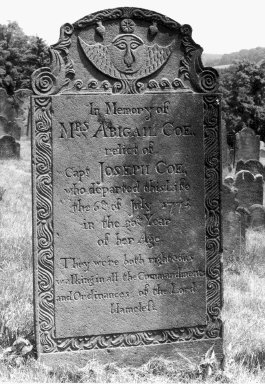 In Memory of
Mrs ABIGAIL COE,
relict of
Capt JOSEPH COE,
who departed this Life
the 6th of July 1775
in the Year
of her Age
They were both righteous
walking in all the Commandments
and Ordinances of the Lord
blameless